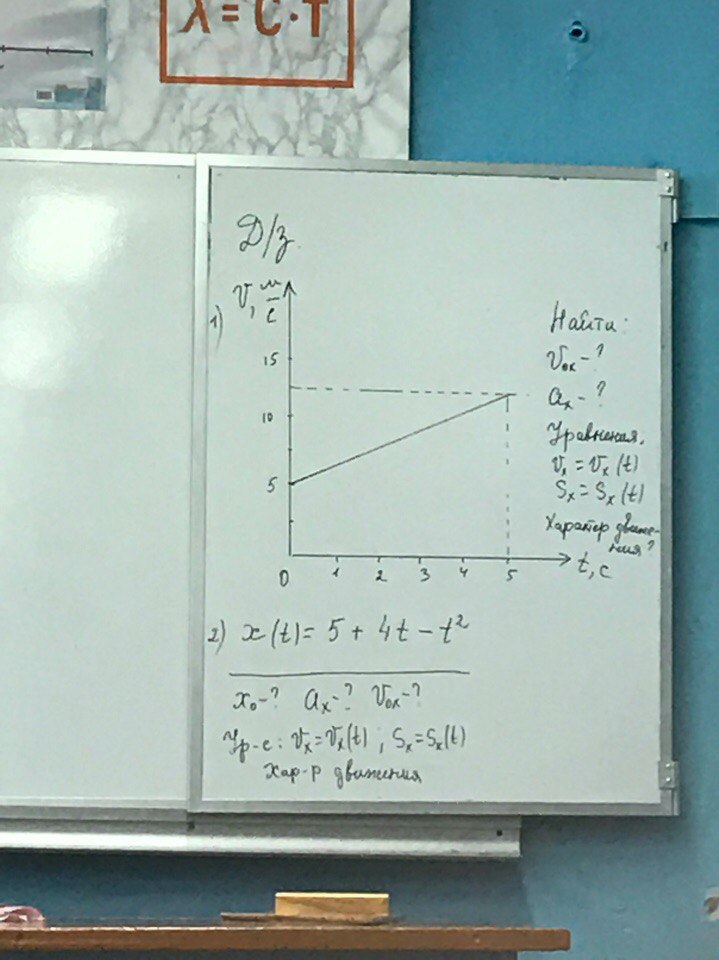 λ = C · T
Д/з.
1)
V, м/с
15
10
5
0 1 2 3 4 5 t, с
Найти:
V₀ₓ - ?
aₓ - ?
Уравнения.
Vₓ = Vₓ (t)
Sₓ = Sₓ (t)
Характер движе-
ния?
2) x(t) = 5 + 4t - t²
x₀ - ? aₓ - ? V₀ₓ - ?
Ур-е: Vₓ = Vₓ(t) ; Sₓ = Sₓ(t)
хар-р движения